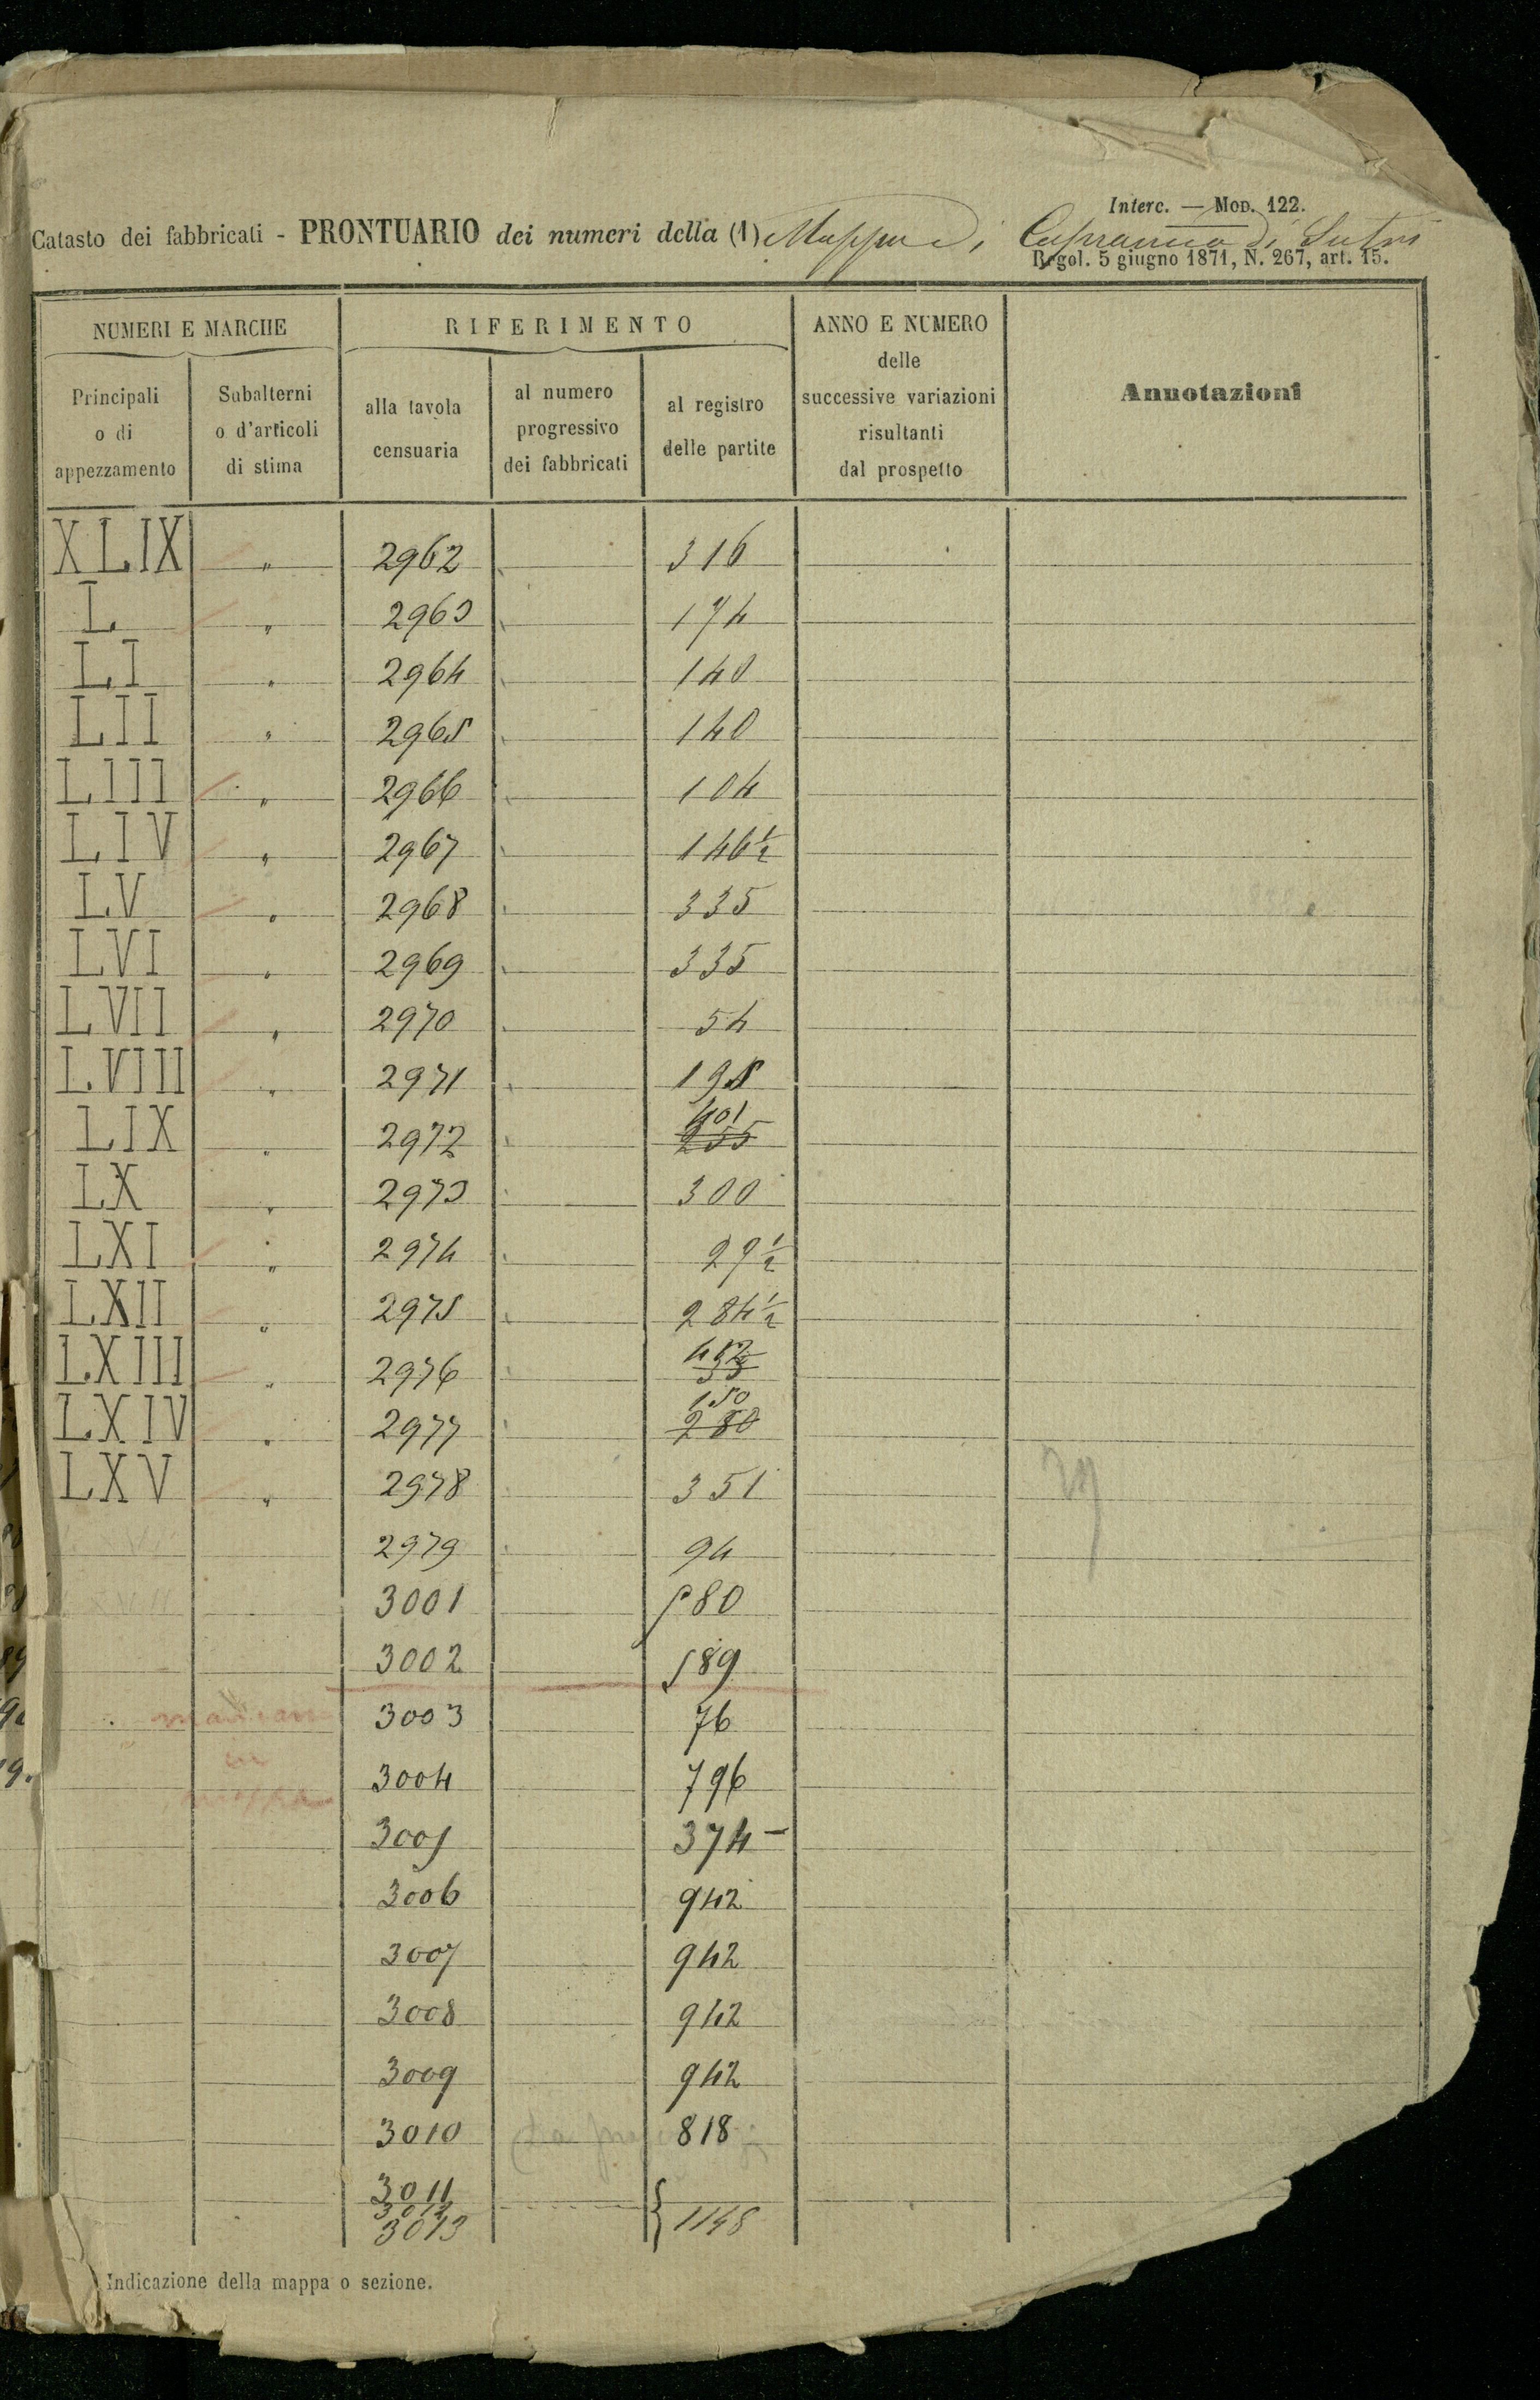 Interc. — Mod. 122.
Catasto dei fabbricati - PRONTUARIO dei numeri della (1) Mappa di Capranica di Sutri
Regol. 5 giugno 1871, N. 267, art. 15.
NUMERI E MARCHE
RIFERIMENTO
ANNO E NUMERO
delle
successive variazioni
risultanti
dal prospetto
Annotazioni
Principali
o di
appezzamento
Subalterni
o d'articoli
di stima
alla tavola
censuaria
al numero
progressivo
dei fabbricati
al registro
delle partite
XLIX " 2962 316
L " 2963 174
LI " 2964 140
LII " 2965 140
LIII " 2966 104
LIV " 2967 146 1/2
LV " 2968 335
LVI " 2969 335
LVII " 2970 54
LVIII " 2971 195
LIX " 2972 401 255
LX " 2973 300
LXI " 2974 27 1/2
LXII " 2975 284 1/2
LXIII " 2976
LXIV " 2977 150 280
LXV " 2978 351
2979 94
3001 580
3002 589
mancan 3003 76
in
mappa 3004 796
3005 374 –
3006 942
3007 942
3008 942
3009 942
3010 818
3011
3012
3013 1148
Indicazione della mappa o sezione.